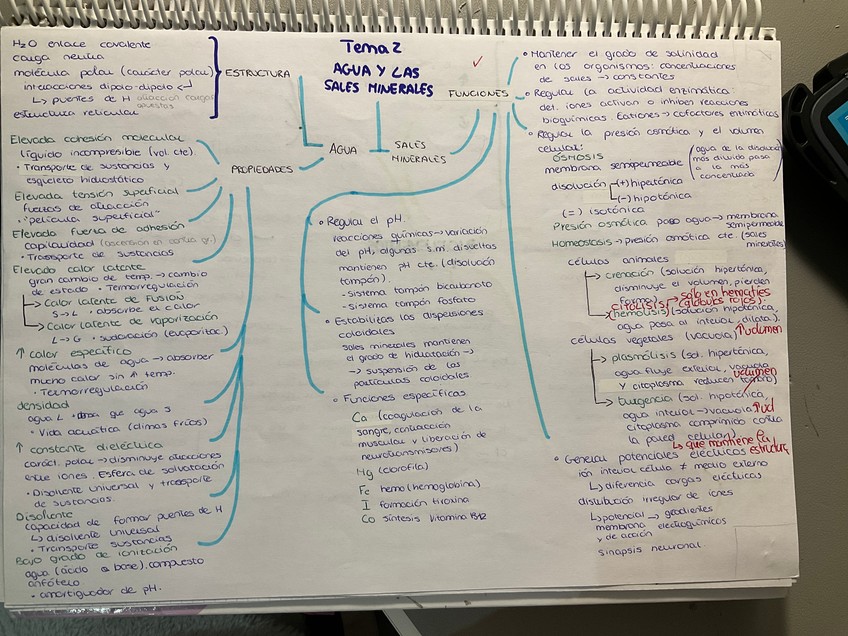 Tema 2
AGUA Y LAS
SALES MINERALES
AGUA
SALES
MINERALES
ESTRUCTURA
H2O enlace covalente
carga neutra
molécula polar (carácter polar)
interacciones dipolo-dipolo ↲
↳ puentes de H atracción cargas
opuestas
estructura reticular
PROPIEDADES
Elevada cohesión molecular
líquido incompresible (vol. cte).
• Transporte de sustancias y
esqueleto hidrostático
Elevada tensión superficial
fuerzas de atracción
• "película superficial"
Elevada fuerza de adhesión
capilaridad (ascensión en contra gr.)
• Transporte de sustancias
Elevado calor latente
gran cambio de temp. → cambio
de estado • Termorregulación
→ Calor latente de FUSIÓN
S→L • absorbe el calor
→ Calor latente de vaporización
L→G • sudoración (evaporitac.)
↑ calor específico
moléculas de agua → absorber
mucho calor sin ↑ temp.
• Termorregulación
densidad
agua L + densa que agua S
• Vida acuática (climas fríos)
↑ constante dieléctrica
caráct. polar → disminuye atracciones
entre iones. Esfera de solvatación
• Disolvente universal y transporte
de sustancias.
Disolvente
capacidad de formar puentes de H
↳ disolvente universal
• Transporte sustancias
Bajo grado de ionización
agua (ácido o base). compuesto
anfótero
• amortiguador de pH.
FUNCIONES
• Regular el pH.
reacciones químicas → variación
del pH, algunas s.m. disueltas
mantienen pH cte. (disolución
tampón).
- Sistema tampón bicarbonato
- Sistema tampón fosfato
• Estabilizas las dispersiones
coloidales
sales minerales mantienen
el grado de hidratación →
→ suspensión de las
partículas coloidales
• Funciones específicas
Ca (coagulación de la
sangre, contracción
muscular y liberación de
neurotransmisores)
Mg (clorofila)
Fe hemo (hemoglobina)
I formación tiroxina
Co síntesis vitamina B12
• Mantener el grado de salinidad
en los organismos: concentraciones
de sales → constantes
• Regular la actividad enzimática:
det. iones activan o inhiben reacciones
bioquímicas. Cationes → cofactores enzimáticos
• Regular la presión osmótica y el volumen
celular:
ÓSMOSIS
membrana semipermeable
(agua de la disoluc.
más diluida pasa
a la más
concentrada)
disolución (+) hipertónica
(-) hipotónica
(=) isotónica
Presión osmótica paso agua → membrana
semipermeable
Homeostasis → presión osmótica cte. (sales
minerales)
células animales
→ crenación (solución hipertónica,
disminuye el volumen, pierden
forma).
CITÓLISIS → solo en hematíes
(glóbulos rojos).
→ (hemólisis) (solución hipotónica,
agua pasa al interior, dilata).
↑ volumen
células vegetales (vacuola)
→ plasmólisis (sol. hipertónica,
agua fluye exterior, vacuola
y citoplasma reducen tamaño)
volumen
→ turgencia (sol. hipotónica,
agua interior → vacuola ↑ vol
citoplasma comprimido contra
la pared celular).
↳ que mantiene la
estructura
• Generar potenciales eléctricos
ión interior célula ≠ medio externo
↳ diferencia cargas eléctricas
distribución irregular de iones
↳ potencial → gradientes
membrana electroquímicos
y de acción
sinapsis neuronal.